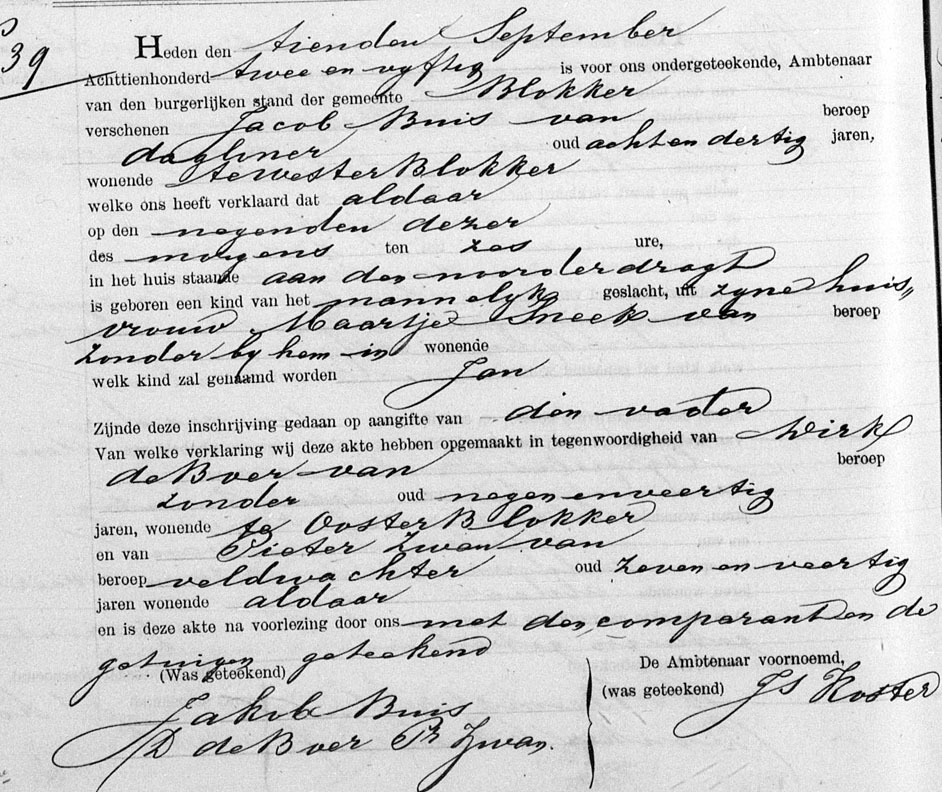 39
Heden den tienden September
Achttienhonderd twee en vyftig is voor ons ondergeteekende, Ambtenaar
van den burgerlijken stand der gemeente Blokker
verschenen Jacob Buis van beroep
dagliner oud acht en dertig jaren,
wonende te Wester Blokker
welke ons heeft verklaard dat aldaar
op den negenden dezer
des morgens ten zes ure,
in het huis staande aan den noorder dragt
is geboren een kind van het mannelyk geslacht, uit zyne huis„
vrouw Maartje Sneek van beroep
zonder by hem in wonende
welk kind zal genaamd worden Jan
Zijnde deze inschrijving gedaan op aangifte van den vader
Van welke verklaring wij deze akte hebben opgemaakt in tegenwoordigheid van Dirk
de Boer van beroep
zonder oud negen en veertig
jaren, wonende te Ooster Blokker
en van Pieter Zwan van
beroep veldwachter oud zeven en veertig
jaren wonende aldaar
en is deze akte na voorlezing door ons met den comparant en de
getuigen geteekend
(Was geteekend)
De Ambtenaar voornoemd,
(was geteekend) Js Koster
Jakob Buis
D de Boer Pr Zwan.